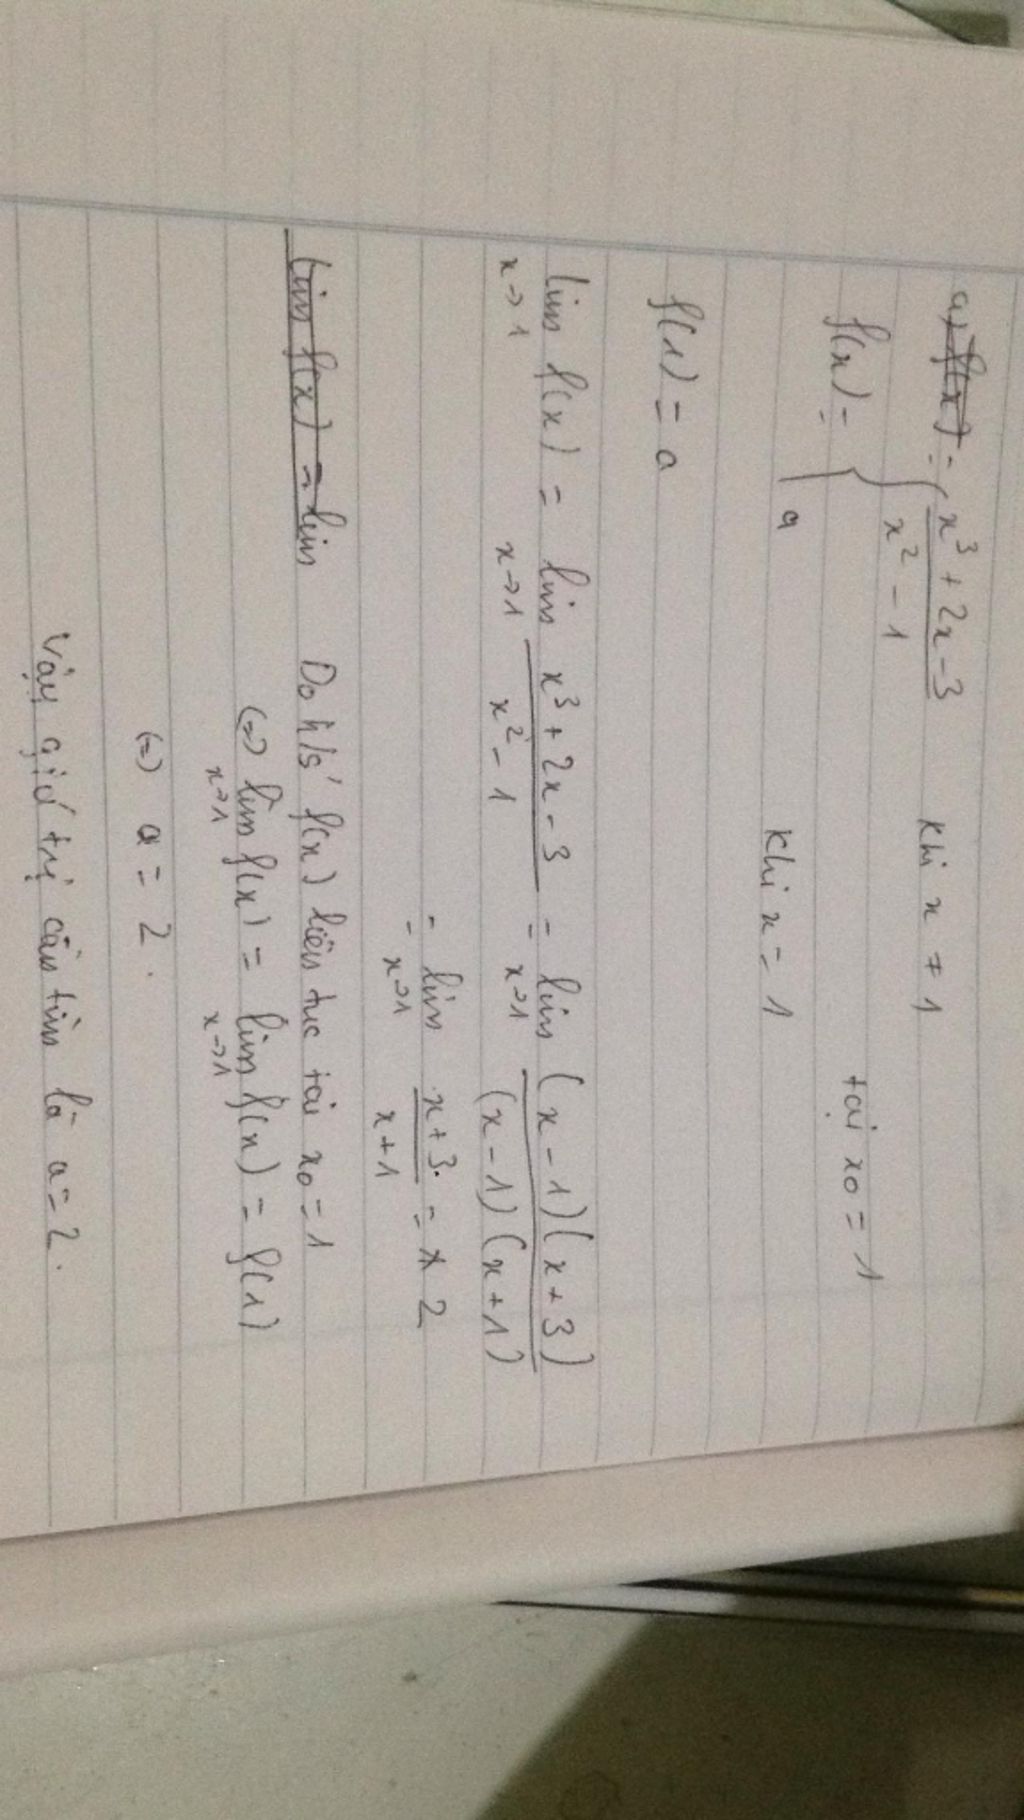 a) f(x) =
f(x) = { (x³ + 2x - 3)/(x² - 1) khi x ≠ 1
a khi x = 1 tại x₀ = 1
f(1) = a
lim x→1 f(x) = lim x→1 (x³ + 2x - 3)/(x² - 1) = lim x→1 (x - 1)(x + 3)/(x - 1)(x + 1)
= lim x→1 (x + 3)/(x + 1) = 2
lim f(x) = lim Do h/s' f(x) liên tục tại x₀ = 1
(=) lim x→1 f(x) = lim x→1 f(x) = f(1)
(=) a = 2.
Vậy giá trị cần tìm là a = 2.